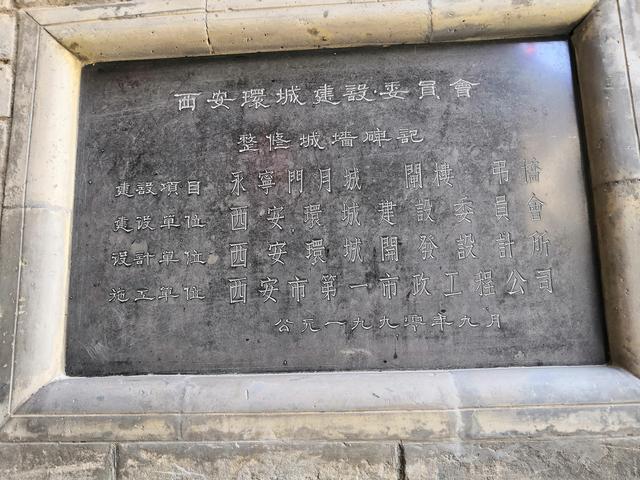 西安環城建設委員會
整修城墻碑記
建設項目 永寧門月城 閘樓 弔橋
建设單位 西安環城建設委員會
设計單位 西安環城開發設計所
施工單位 西安市第一市政工程公司
公元一九九零年九月